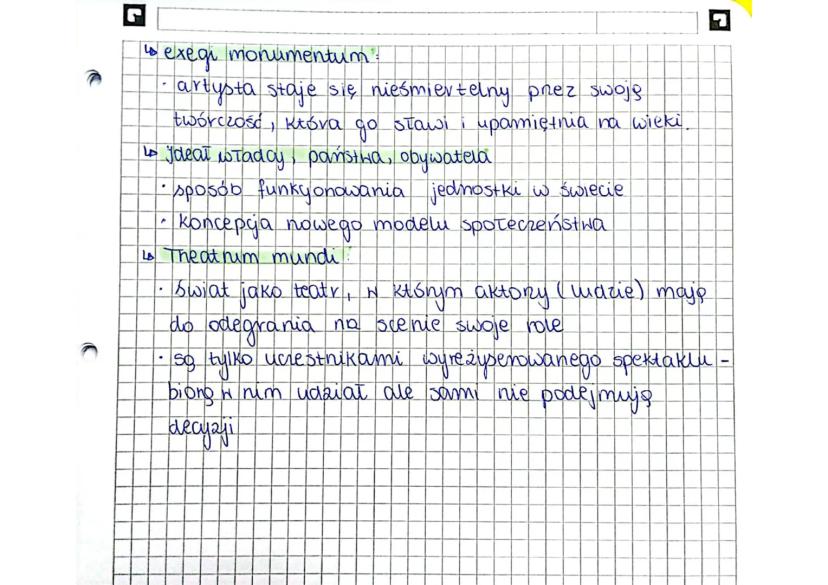 ↳ exegi monumentum:
· artysta staje się nieśmiertelny przez swoją
twórczość, która go sławi i upamiętnia na wieki.
↳ Ideał władcy, państwa, obywatela
· sposób funkcjonowania jednostki w świecie
· koncepcja nowego modelu społeczeństwa
↳ Theatrum mundi:
· świat jako teatr, w którym aktorzy (ludzie) mają
do odegrania na scenie swoje role
· są tylko uczestnikami wyreżyserowanego spektaklu -
biorą w nim udział ale sami nie podejmują
decyzji